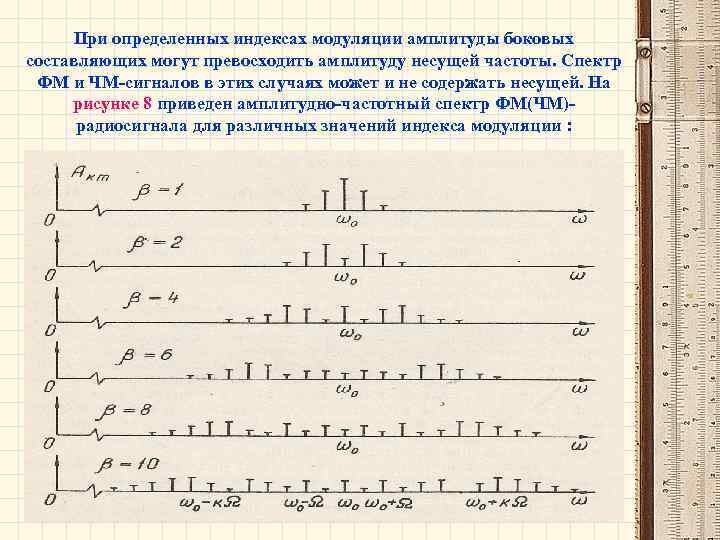 При определенных индексах модуляции амплитуды боковых
составляющих могут превосходить амплитуду несущей частоты. Спектр
ФМ и ЧМ-сигналов в этих случаях может и не содержать несущей. На
рисунке 8 приведен амплитудно-частотный спектр ФМ(ЧМ)-
радиосигнала для различных значений индекса модуляции :
Aкт β = 1
0 ω₀ ω
β = 2
0 ω₀ ω
β = 4
0 ω₀ ω
β = 6
0 ω₀ ω
β = 8
0 ω₀ ω
β = 10
0 ω₀-кΩ ω₀-Ω ω₀ ω₀+Ω ω₀+кΩ ω